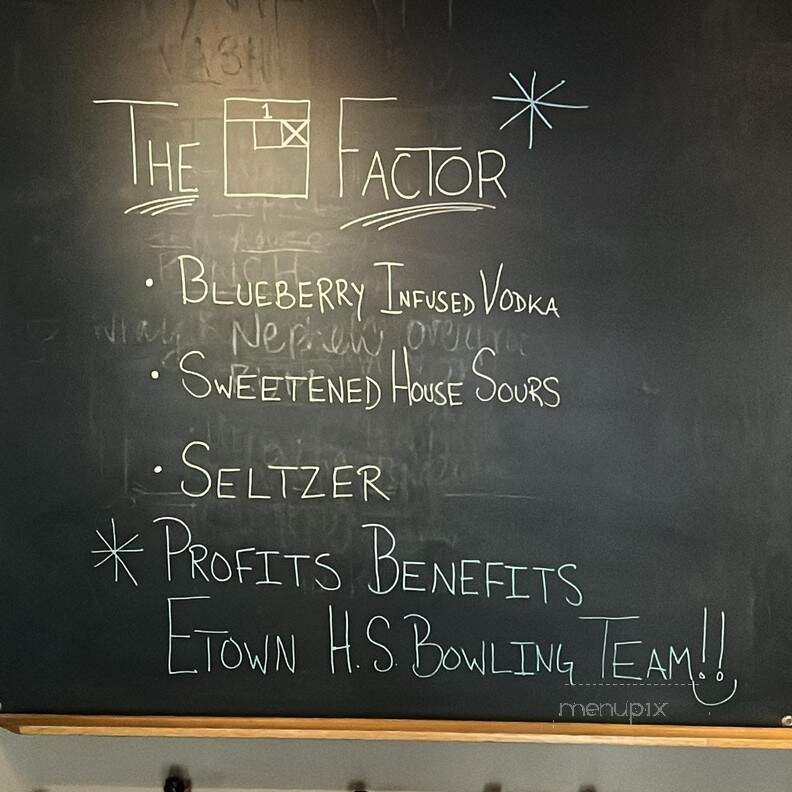 THE 1 X FACTOR*
• BLUEBERRY INFUSED VODKA
• SWEETENED HOUSE SOURS
• SELTZER
* PROFITS BENEFITS
ETOWN H.S. BOWLING TEAM!!
menupix
Nephew